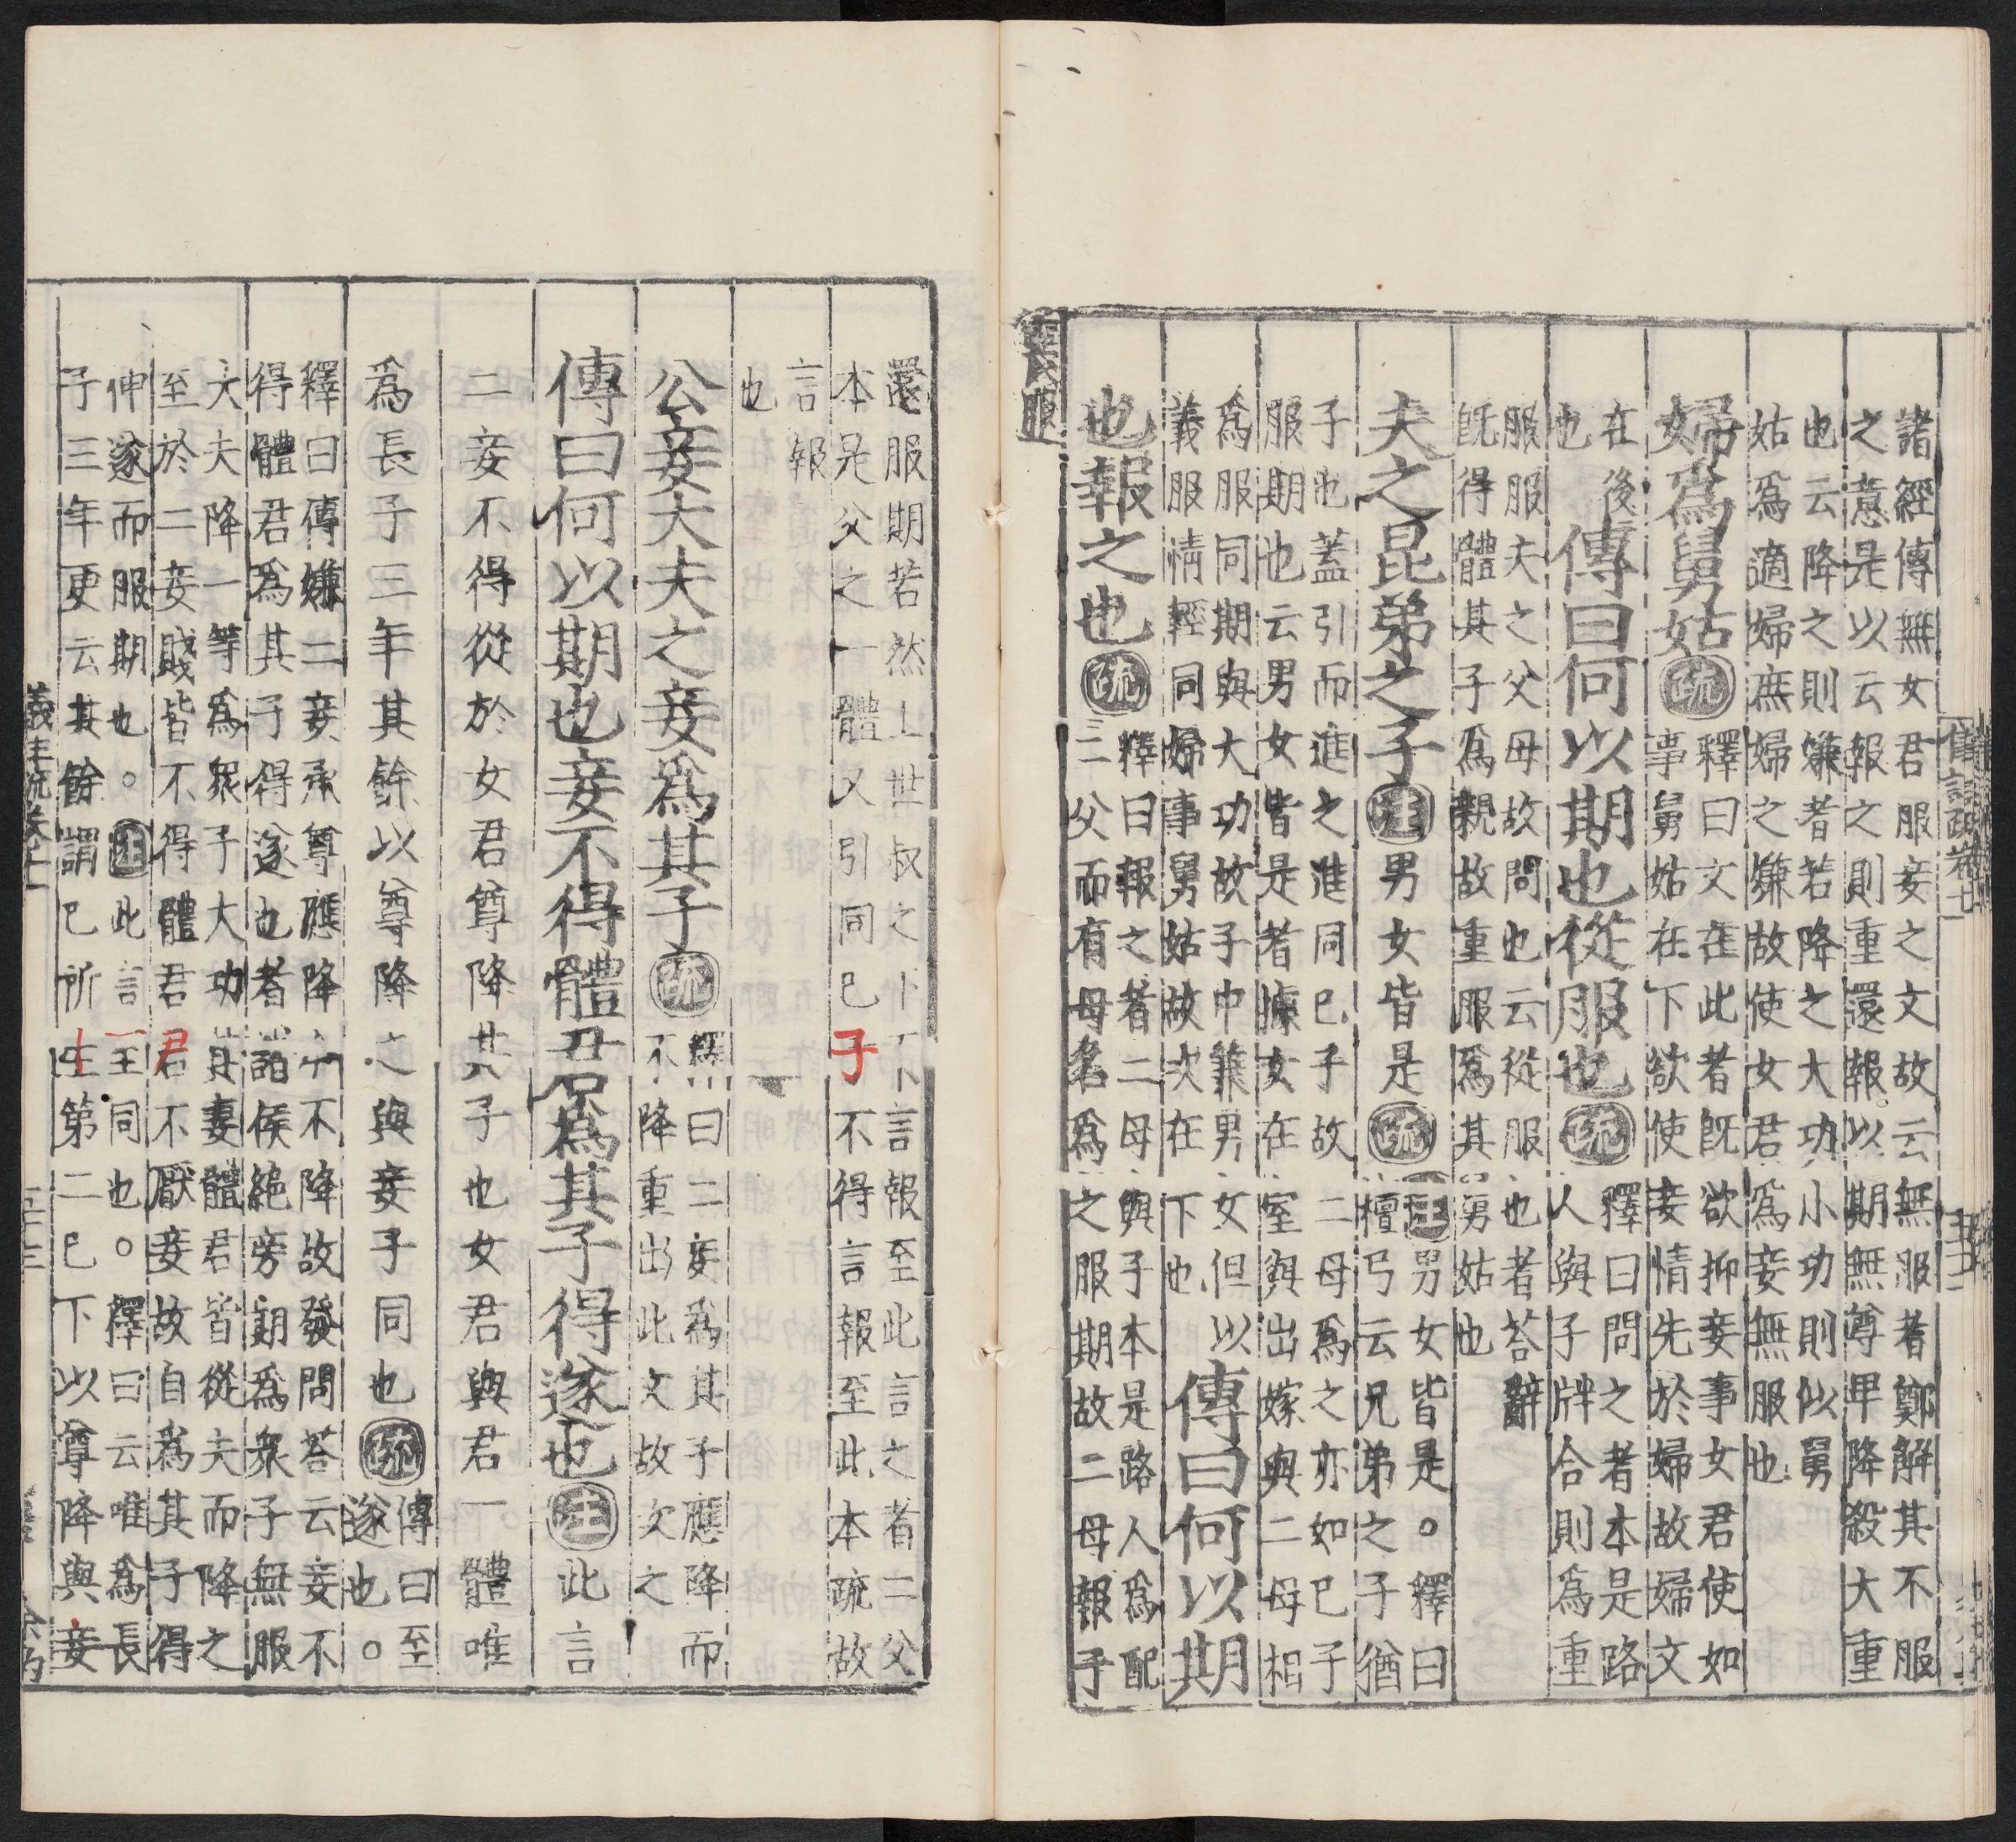 諸經傳無女君服妾之文故云無服者鄭解其不服
之意是以云報之則重還報以期無尊卑降殺大重
也云降之則嫌者若降之大功小功則似舅
姑爲適婦庶婦之嫌故使女君爲妾無服也
婦爲舅姑疏
釋曰文在此者既欲抑妾事女君使如
事舅姑在下欲使妾情先於婦故婦文
在後
也
傳曰何以期也從服也疏
釋曰問之者本是路
人與子牉合則爲重
服服夫之父母故問也云從服也者荅辭
既得體其子爲親故重服爲其舅姑也
夫之昆弟之子注男女皆是疏
注男女皆是。釋曰
檀弓云兄弟之子猶
子也蓋引而進之進同己子故二母爲之亦如己子
服期也云男女皆是者據女在室與出嫁與二母相
爲服同期與大功故子中兼男女但以
義服情輕同婦事舅姑故次在下也
傳曰何以期
也報之也疏
釋曰報之者二母與子本是路人爲配
二父而有母名爲之服期故二母報子
還服期若然上世叔之下不言報至此言之者二父
本是父之一體又引同己子不得言報至此本疏故
言報
也
公妾大夫之妾爲其子疏
釋曰二妾爲其子應降而
不降重出此文故次之
傳曰何以期也妾不得體君爲其子得遂也注此言
二妾不得從於女君尊降其子也女君與君一體唯
爲長子三年其餘以尊降之與妾子同也疏
傳曰至
遂也。
釋曰傳嫌二妾承尊應降今不降故發問荅云妾不
得體君爲其子得遂也者諸侯絕旁期爲衆子無服
大夫降一等爲衆子大功其妻體君皆從夫而降之
至於二妾賤皆不得體君君不厭妾故自爲其子得
伸遂而服期也。注此言至同也。釋曰云唯爲長
子三年更云其餘謂己所生第二已下以尊降與妾